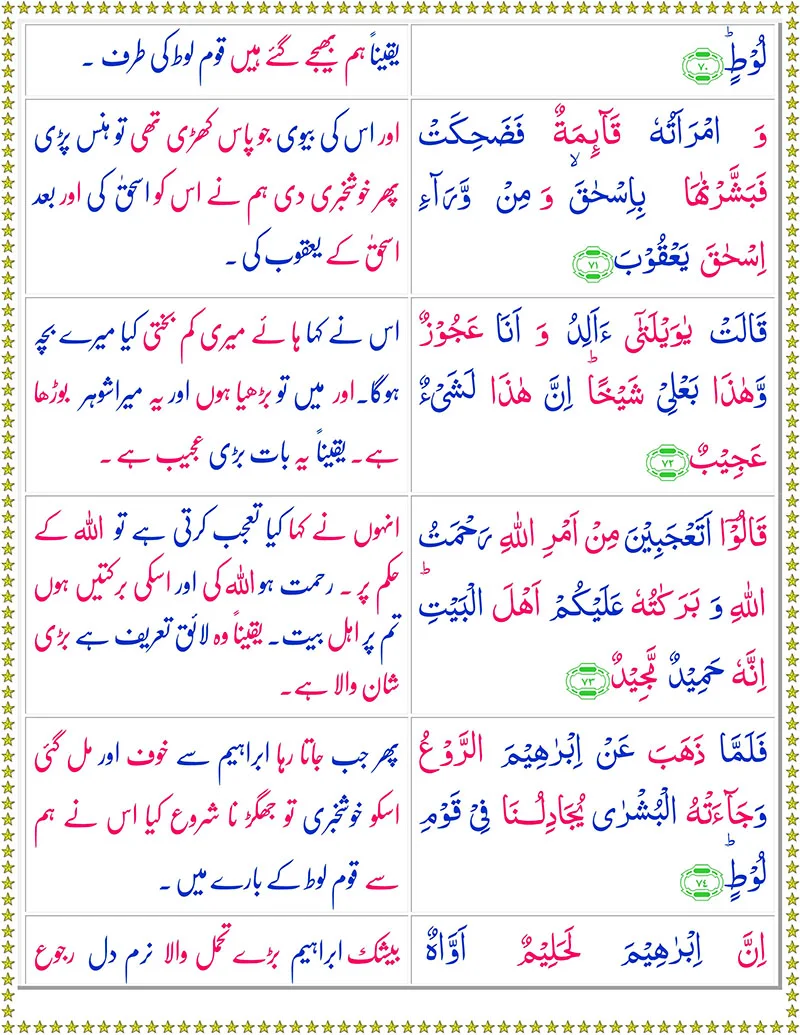 لُوۡطٍؕ ﴿۷۰﴾
یقیناً ہم بھیجے گئے ہیں قوم لوط کی طرف ۔
وَ امۡرَاَتُہٗ قَآئِمَۃٌ فَضَحِکَتۡ
فَبَشَّرۡنٰہَا بِاِسۡحٰقَ ۙ وَ مِنۡ وَّرَآءِ
اِسۡحٰقَ یَعۡقُوۡبَ ﴿۷۱﴾
اور اس کی بیوی جو پاس کھڑی تھی تو ہنس پڑی
پھر خوشخبری دی ہم نے اس کو اسحٰق کی اور بعد
اسحٰق کے یعقوب کی ۔
قَالَتۡ یٰوَیۡلَتٰۤی ءَاَلِدُ وَ اَنَا عَجُوۡزٌ
وَّہٰذَا بَعۡلِیۡ شَیۡخًا ؕ اِنَّ ہٰذَا لَشَیۡءٌ
عَجِیۡبٌ ﴿۷۲﴾
اس نے کہا ہائے میری کم بختی کیا میرے بچہ
ہوگا۔اور میں تو بڑھیا ہوں اور یہ میرا شوہر بوڑھا
ہے۔ یقیناً یہ بات بڑی عجیب ہے ۔
قَالُوۡۤا اَتَعۡجَبِیۡنَ مِنۡ اَمۡرِ اللّٰہِ رَحۡمَتُ
اللّٰہِ وَ بَرَکٰتُہٗ عَلَیۡکُمۡ اَہۡلَ الۡبَیۡتِ ؕ
اِنَّہٗ حَمِیۡدٌ مَّجِیۡدٌ ﴿۷۳﴾
انہوں نے کہا کیا تعجب کرتی ہے تو اللہ کے
حکم پر ۔ رحمت ہو اللہ کی اور اسکی برکتیں ہوں
تم پر اہل بیت۔ یقیناً وہ لائق تعریف ہے بڑی
شان والا ہے۔
فَلَمَّا ذَہَبَ عَنۡ اِبۡرٰہِیۡمَ الرَّوۡعُ
وَجَآءَتۡہُ الۡبُشۡرٰی یُجَادِلُنَا فِیۡ قَوۡمِ
لُوۡطٍؕ ﴿۷۴﴾
پھر جب جاتا رہا ابراہیم سے خوف اور مل گئی
اسکو خوشخبری تو جھگڑ نا شروع کیا اس نے ہم
سے قوم لوط کے بارے میں ۔
اِنَّ اِبۡرٰہِیۡمَ لَحَلِیۡمٌ اَوَّاہٌ
بیشک ابراہیم بڑے تحمل والا نرم دل رجوع